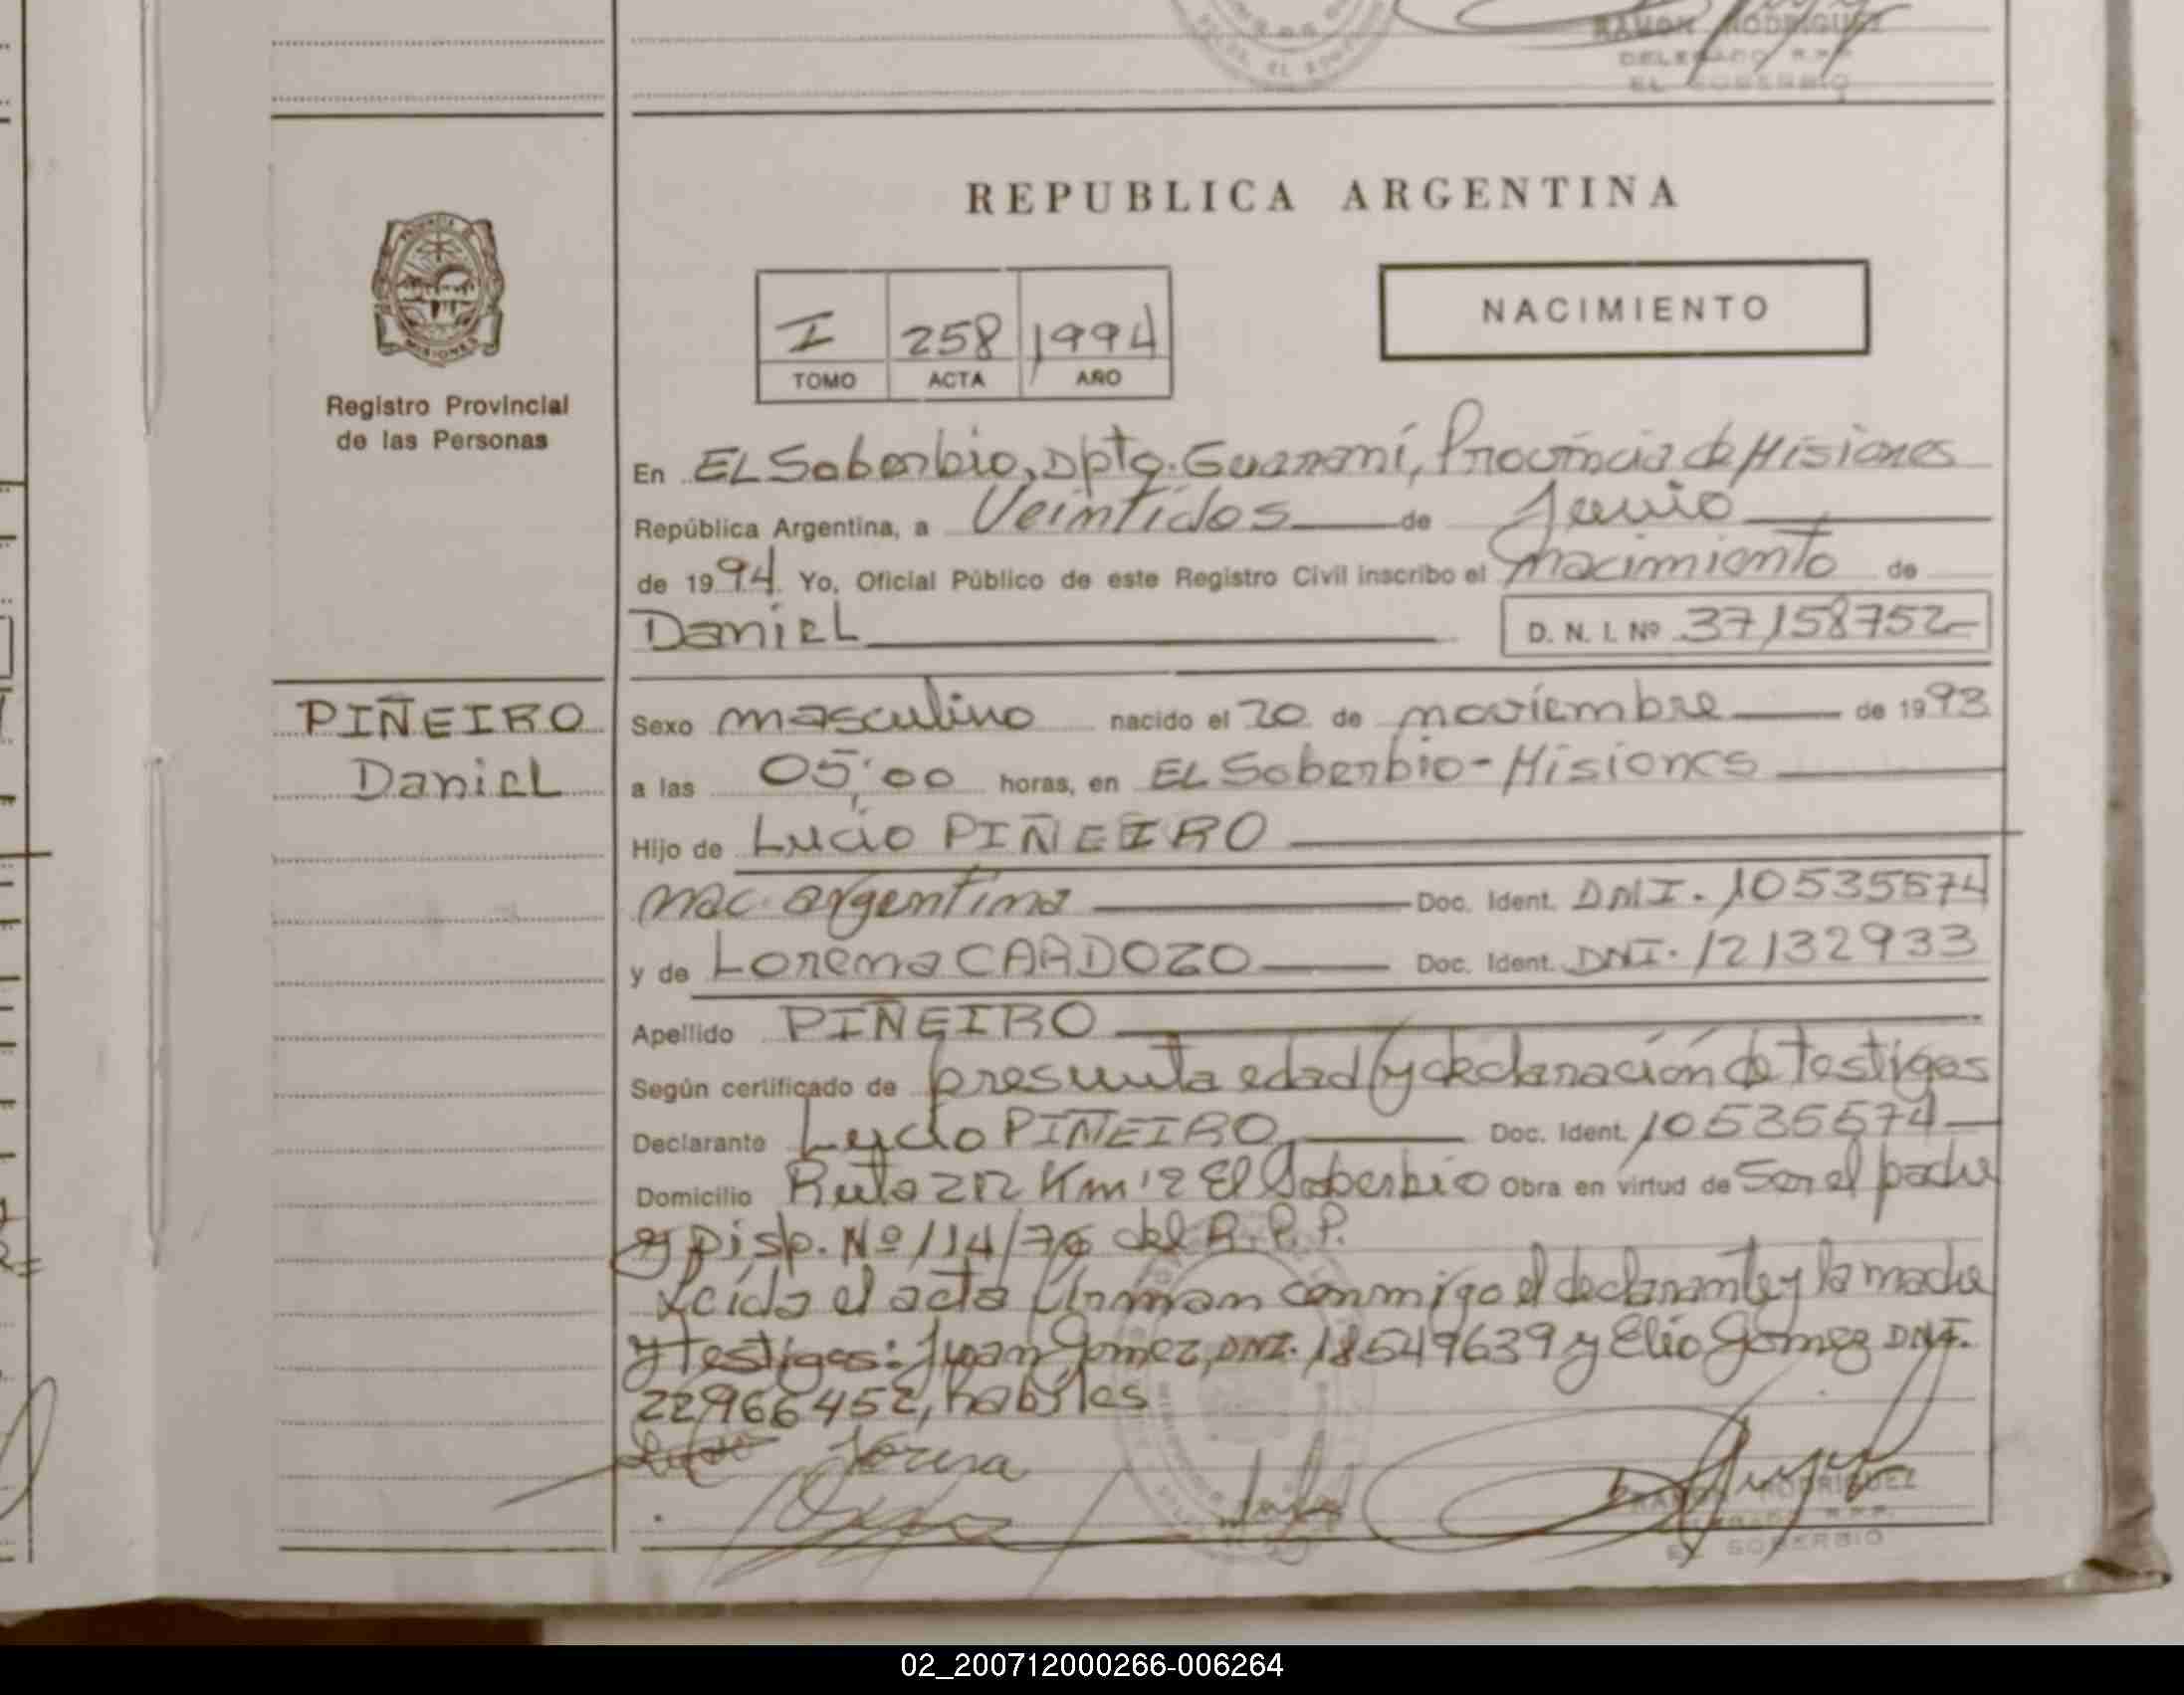 RAMON RODRIGUEZ
DELEGADO R.P.P.
EL SOBERBIO
REPUBLICA ARGENTINA
PROVINCIA DE
MISIONES
Registro Provincial
de las Personas
I 258 1994
TOMO ACTA AÑO
NACIMIENTO
En EL Soberbio, Dpto. Guaraní, Provincia de Misiones
República Argentina, a Veintidos de Junio
de 1994 Yo, Oficial Público de este Registro Civil inscribo el nacimiento de
Daniel D. N. I. Nº 37158752
PIÑEIRO
Daniel
Sexo masculino nacido el 20 de noviembre de 1993
a las 05:00 horas, en EL Soberbio - Misiones
Hijo de Lucio PIÑEIRO
nac. argentina Doc. Ident. DNI. 10535574
y de Lorena CARDOZO Doc. Ident. DNI. 12132933
Apellido PIÑEIRO
Según certificado de presunta edad y declaración de testigos
Declarante Lucio PIÑEIRO Doc. Ident. 10535574
Domicilio Ruta 212 Km 12 El Soberbio Obra en virtud de ser el padre
y Disp. Nº 114/76 del R.P.P.
Leída el acta firman conmigo el declarante y la madre
y testigos: Juan Gomez, DNI. 18549639 y Elio Gomez DNI.
22966452, habiles
RAMON RODRIGUEZ
DELEGADO R.P.P.
EL SOBERBIO
02_200712000266-006264